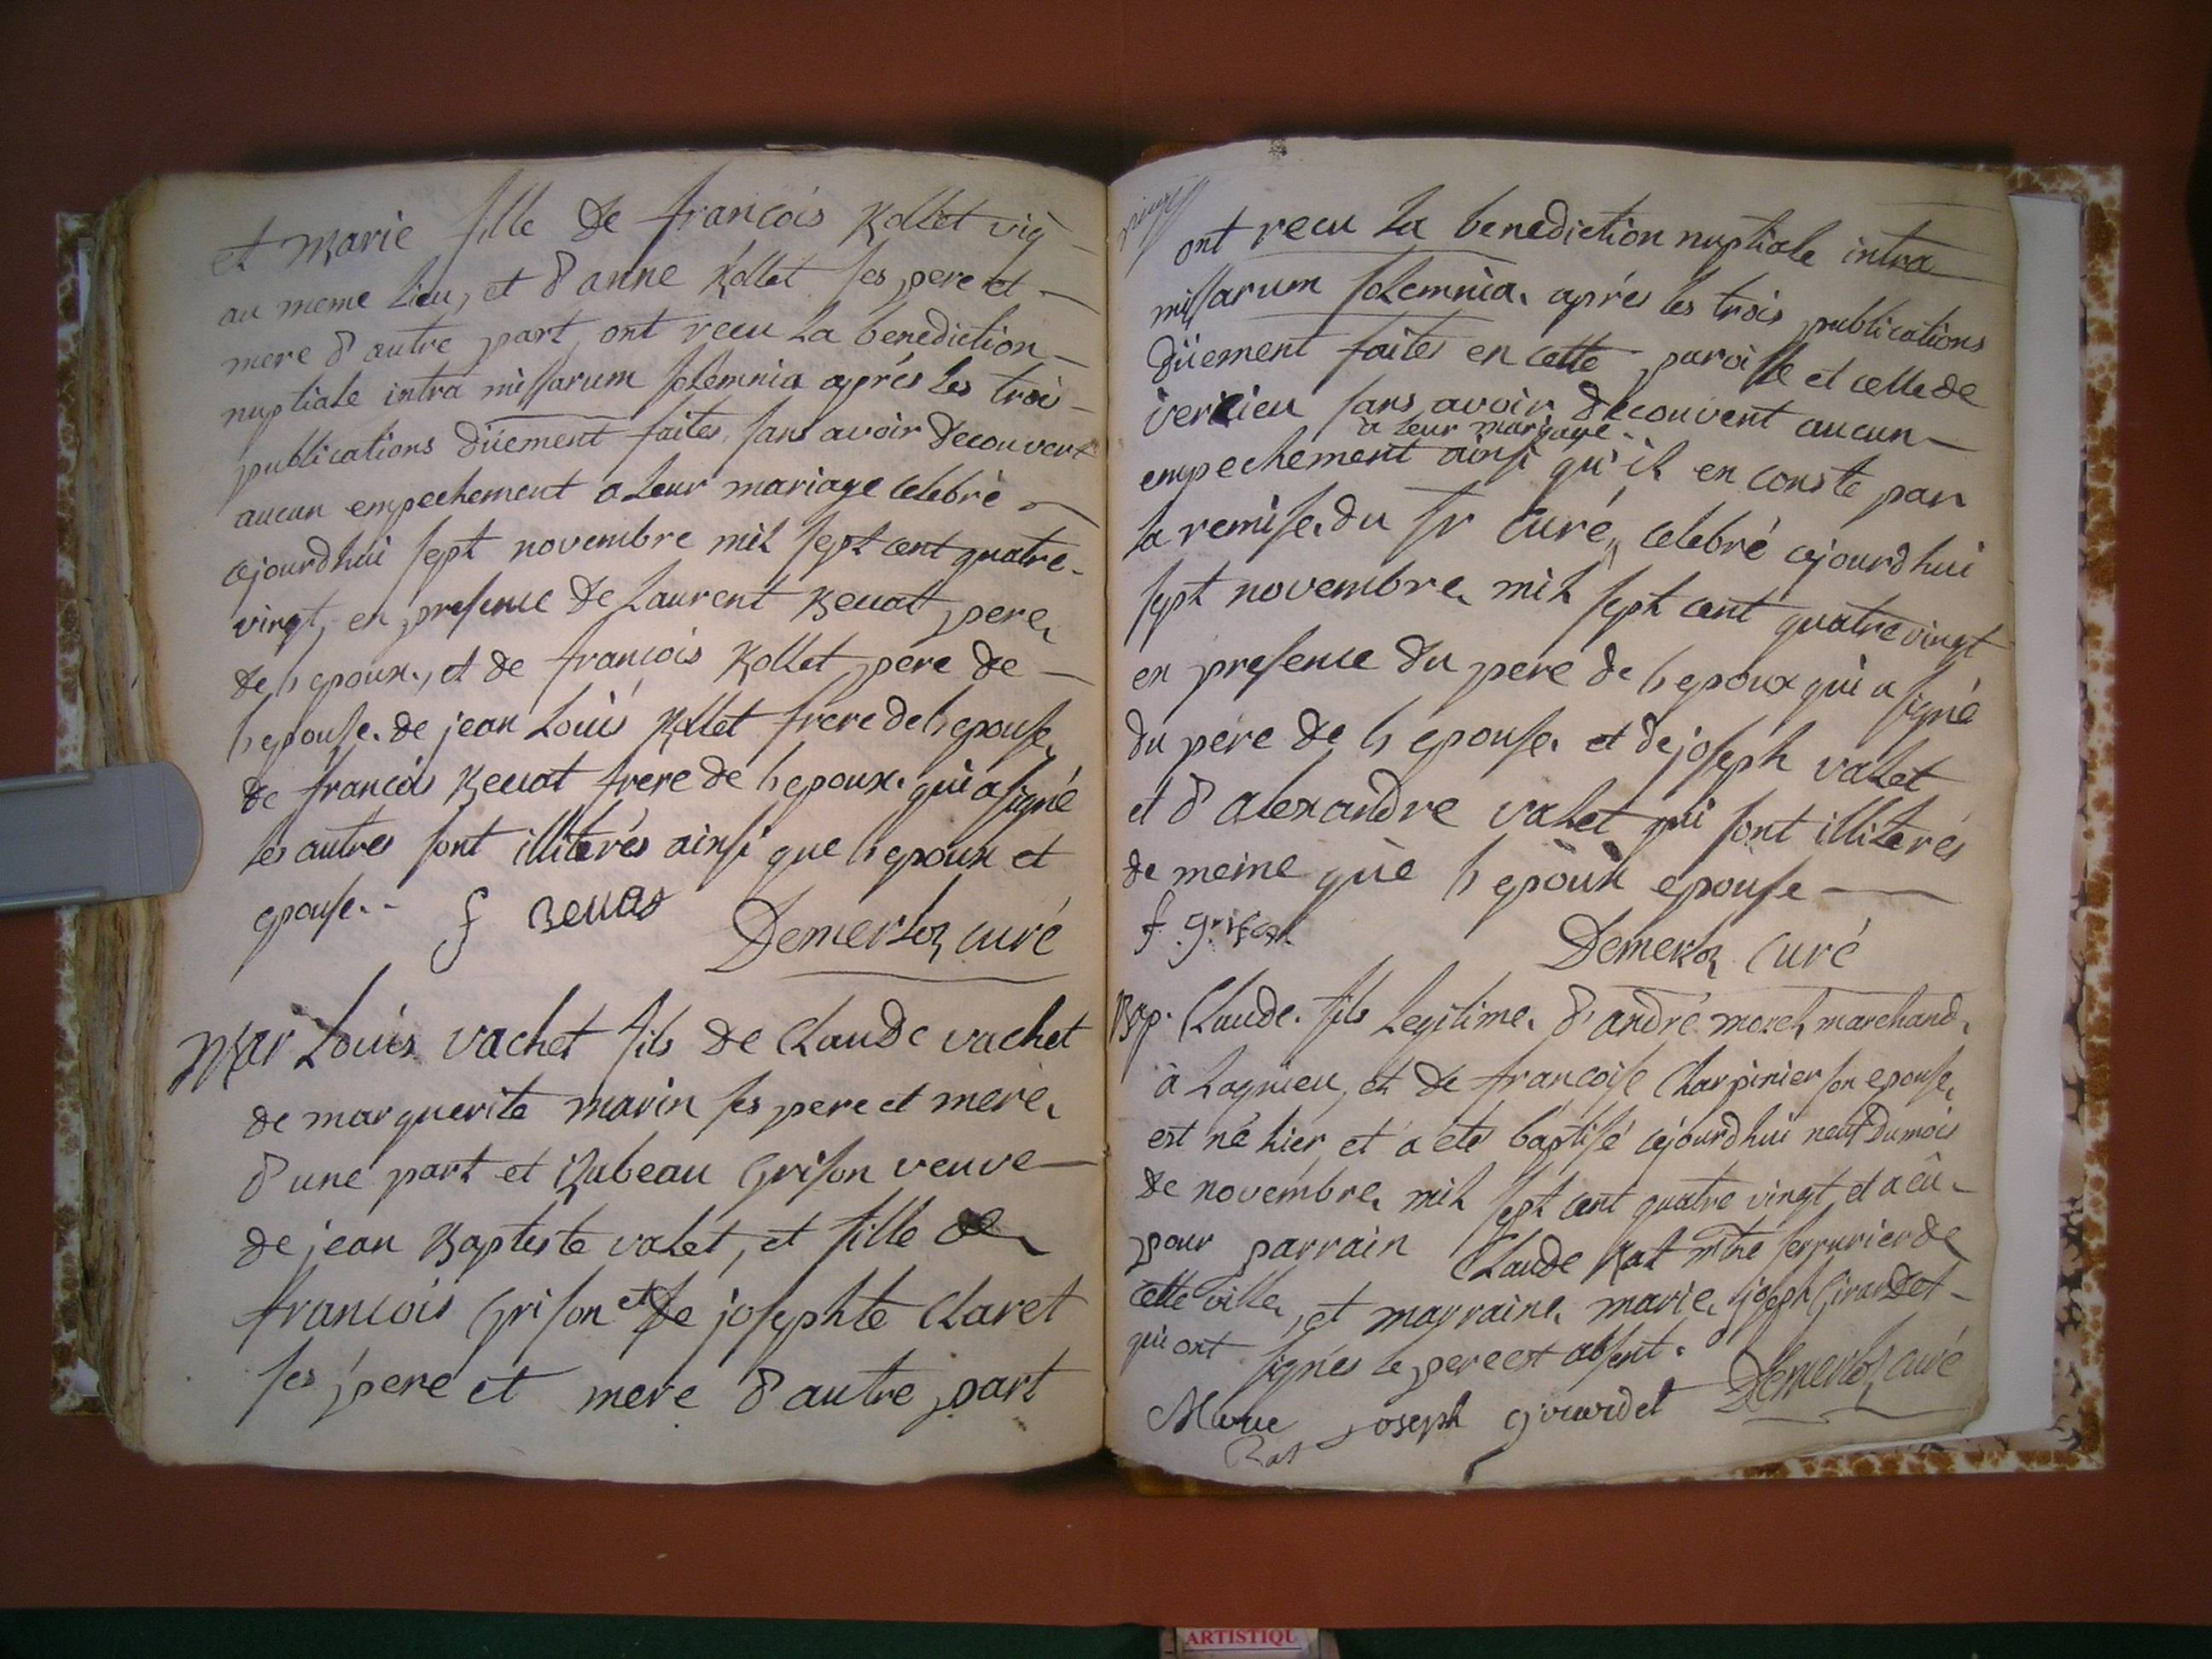 et Marie fille de francois Rollet vig
au meme lieu, et d'anne Rollet ses pere et
mere d'autre part, ont recu la benediction
nuptiale intra missarum solemnia aprés les trois
publications düement faites, sans avoir decouvert
aucun empechement a leur mariage celebré
cejourdhui sept novembre mil sept cent quatre
vingt, en presence de Laurent Revat pere
de l'epoux, et de francois Rollet pere de
l'epouse, de jean Louis Rollet frere de l'epouse
de francois Revat frere de l'epoux qui a signé
les autres sont illiterés ainsi que l'epoux et
epouse. f Revat Demerloz curé
Mar Louis vachet fils de Claude vachet
de marguerite marin ses pere et mere
d'une part et isabeau Grison veuve
de jean Baptiste valet, et fille de
francois Grison et de josephte Claret
ses pere et mere d'autre part
ont recu la benediction nuptiale intra
missarum solemnia aprés les trois publications
düement faites en cette paroisse et celle de
sans avoir decouvent aucun
à leur mariage
empechement ainsi qu'il en conste par
la remise du sr Curé, celebré cejourdhui
sept novembre mil sept cent quatre vingt
en presence du pere de l'epoux qui a signé
du pere de l'epouse et de joseph valet
et d'alexandre valet qui sont illiterés
de meme que l'epoux epouse
f grison Demerloz Curé
Bap. Claude fils legitime d'andré morel marchand
à Lagnieu, et de francoise Charpinier son epouse
est né hier et a eté baptisé cejourdhui neuf du mois
de novembre mil sept cent quatre vingt, et a eû
pour parrain Claude Rat mtre serrurier de
cette ville, et marraine marie joseph Girardet
qui ont signés le pere est absent. Demerloz curé
Marie joseph girardet
Rat
ARTISTIQU